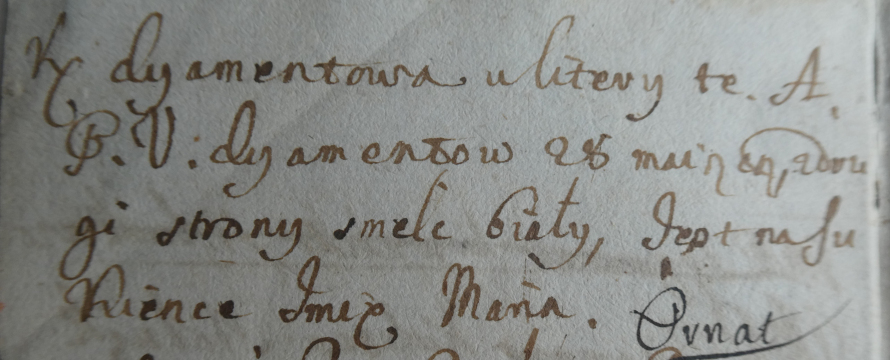 dyamentowa u litery te. A.
B. V: dyamentow 28 maią cą, zdru
gi strony smelc biały, Jest na su
kience Imie Maria. Ornat